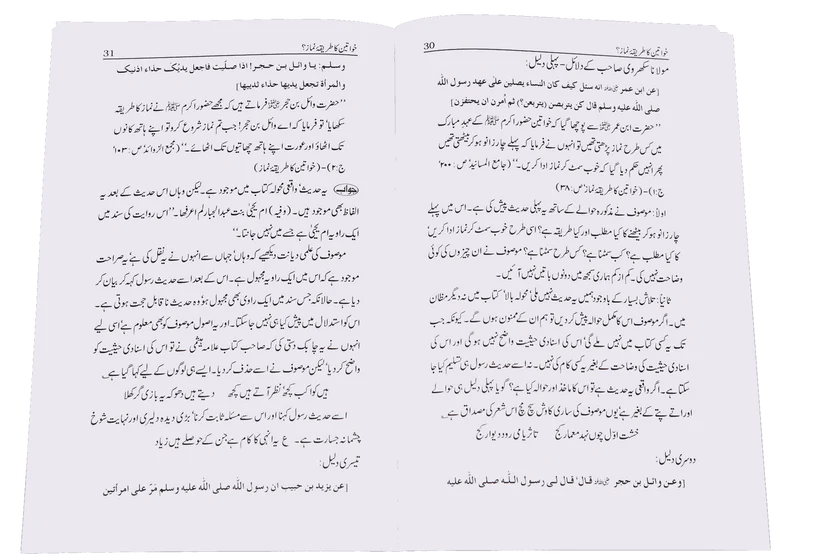 خواتین کا طریقۂ نماز؟
30
مولانا سکھروی صاحب کے دلائل - پہلی دلیل:
[عن ابن عمر رضی اللہ عنہ انه سئل كيف كان النساء يصلين على عهد رسول الله
صلى الله عليه وسلم قال كن يتربصن (يتربعن؟) ثم أمرن ان يحتفزن]
’’حضرت ابن عمر رضی اللہ عنہ سے پوچھا گیا کہ خواتین حضور اکرم ﷺ کے عہد مبارک
میں کس طرح نماز پڑھتی تھیں تو انہوں نے فرمایا کہ پہلے چار زانو ہو کر بیٹھتی تھیں
پھر انہیں حکم دیا گیا کہ خوب سمٹ کر نماز ادا کریں۔‘‘ (جامع المسانید‘ ص: ۴۰۰
ج:۱) - (خواتین کا طریقۂ نماز‘ ص: ۳۸)
اولاً: موصوف نے مذکورہ حوالے کے ساتھ یہ پہلی حدیث پیش کی ہے۔ اس میں پہلے
چار زانو ہو کر بیٹھنے کا کیا مطلب اور کیا طریقہ ہے؟ اسی طرح خوب سمٹ کر نماز ادا کریں‘
کا کیا مطلب ہے؟ کب سمٹنا ہے؟ کس طرح سمٹنا ہے؟ موصوف نے ان چیزوں کی کوئی
وضاحت نہیں کی۔ کم از کم ہماری سمجھ میں دونوں باتیں نہیں آئیں۔
ثانیاً: تلاش بسیار کے باوجود ہمیں یہ حدیث نہیں ملی‘ محولہ بالا کتاب میں نہ دیگر مظان
میں۔ اگر موصوف اس کا مکمل حوالہ پیش کر دیں تو ہم ان کے ممنون ہوں گے۔ کیونکہ جب
تک یہ کسی کتاب میں نہیں ملے گی‘ اس کی اسنادی حیثیت واضح نہیں ہو گی اور اس کی
اسنادی حیثیت کی وضاحت کے بغیر یہ کسی کام کی نہیں۔ نہ اسے حدیث رسول ہی تسلیم کیا جا
سکتا ہے۔ اگر واقعی یہ حدیث ہے تو اس کا ماخذ اور حوالہ کیا ہے؟ گویا پہلی دلیل ہی حوالے
اور اتے پتے کے بغیر ہے‘ یوں موصوف کی ساری کاوش سچ مچ اس شعر کی مصداق ہے ؎
خشت اوّل چوں نہد معمار کج تا ثریا می رود دیوار کج
دوسری دلیل:
[وعن وائل بن حجر رضی اللہ عنہ قال‘ قال لى رسول الله صلى الله عليه
خواتین کا طریقۂ نماز؟
31
وسلم: يا وائل بن حجر! اذا صليت فاجعل يديك حذاء اذنيك
والمرأة تجعل يديها حذاء ثدييها]
’’حضرت وائل بن حجر رضی اللہ عنہ فرماتے ہیں کہ مجھے حضور اکرم ﷺ نے نماز کا طریقہ
سکھایا‘ تو فرمایا کہ اے وائل بن حجر! جب تم نماز شروع کرو تو اپنے ہاتھ کانوں
تک اٹھاؤ اور عورت اپنے ہاتھ چھاتیوں تک اٹھائے۔‘‘ (مجمع الزوائد‘ ص: ۱۰۳‘
ج:۲) - (خواتین کا طریقۂ نماز)
جواب: یہ حدیث‘ واقعی محولہ کتاب میں موجود ہے۔ لیکن وہاں اس حدیث کے بعد یہ
الفاظ بھی موجود ہیں۔ (وفیہ) ام یحیٰی بنت عبدالجبار لم اعرفھا۔ ’’اس روایت کی سند میں
ایک راویہ ام یحیٰی ہے جسے میں نہیں جانتا۔‘‘
موصوف کی علمی دیانت دیکھیے کہ وہاں‘ جہاں سے انہوں نے نقل کی ہے‘ یہ صراحت
موجود ہے کہ اس میں ایک راویہ مجہول ہے۔ اس کے بعد اسے حدیث رسول کہہ کر بیان کر
دیا ہے۔ حالانکہ جس سند میں ایک راوی بھی مجہول ہو‘ وہ حدیث ناقابل حجت ہوتی ہے۔
اس کو استدلال میں پیش کیا ہی نہیں جا سکتا۔ اور یہ اصول موصوف کو بھی معلوم ہے‘ اسی لیے
انہوں نے یہ چابک دستی کی کہ صاحب کتاب علامہ ہیثمی نے تو اس کی اسنادی حیثیت کو
واضح کر دیا‘ لیکن موصوف نے اسے حذف کر دیا۔ ایسے ہی لوگوں کے لیے کہا گیا ہے ؎
ہیں کواکب کچھ‘ نظر آتے ہیں کچھ دیتے ہیں دھوکہ یہ بازی گر کھلا
اسے حدیث رسول کہنا اور اس سے مسئلہ ثابت کرنا‘ بڑی دیدہ دلیری اور نہایت شوخ
چشمانہ جسارت ہے۔ ع یہ انہی کا کام ہے جن کے حوصلے ہیں زیاد
تیسری دلیل:
[عن يزيد بن حبيب ان رسول الله صلى الله عليه وسلم مرّ على امرأتين